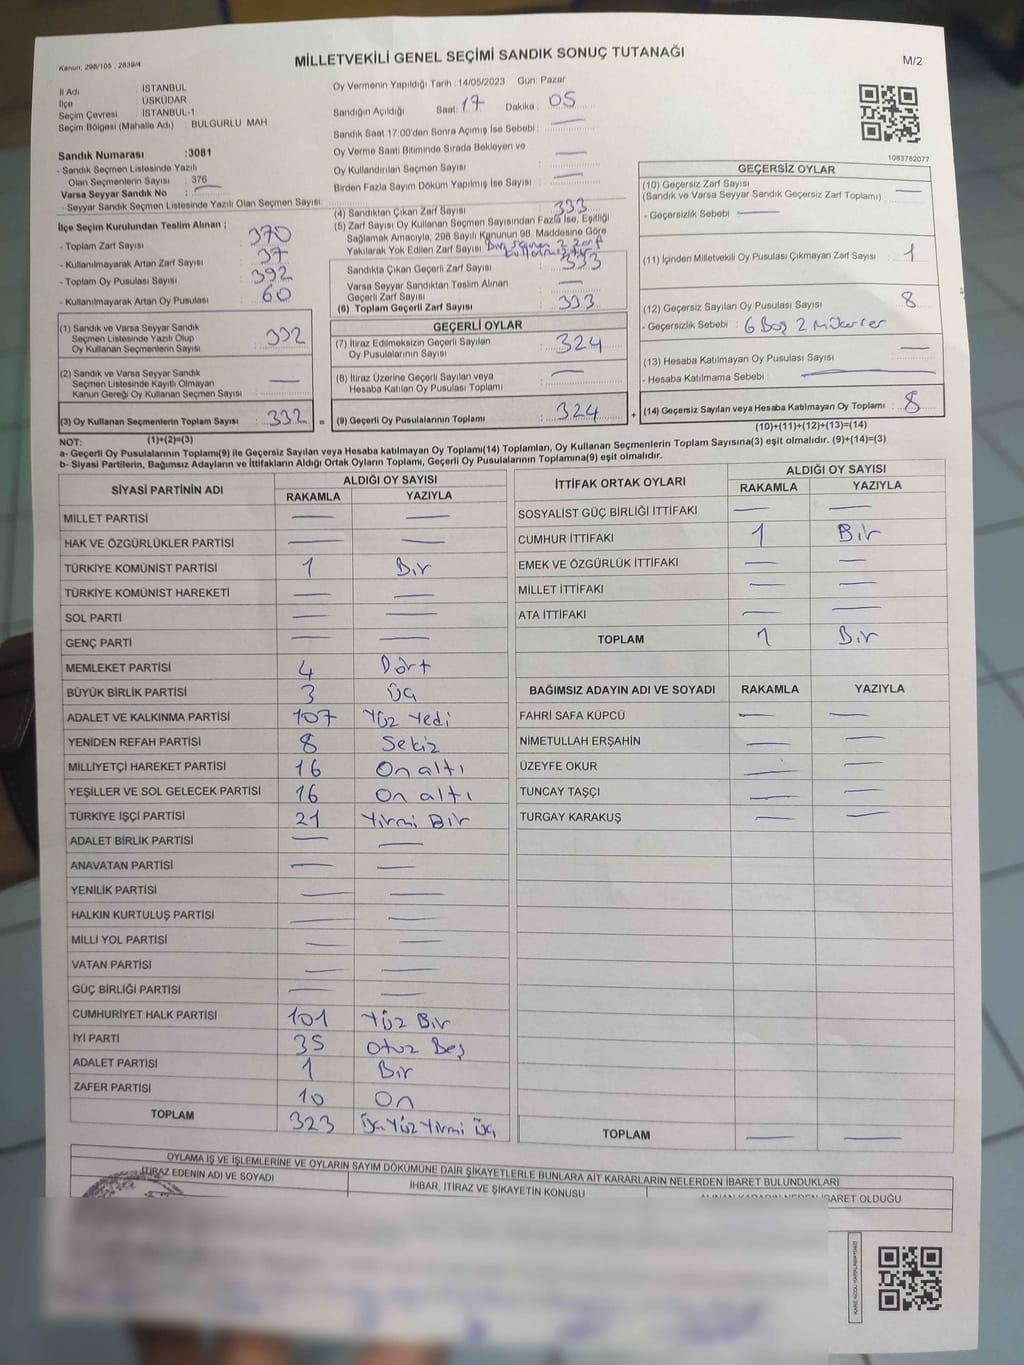 Kanun: 298/105 , 2839/4
MİLLETVEKİLİ GENEL SEÇİMİ SANDIK SONUÇ TUTANAĞI
M/2
İl Adı : İSTANBUL
İlçe : ÜSKÜDAR
Seçim Çevresi : İSTANBUL-1
Seçim Bölgesi (Mahalle Adı) : BULGURLU MAH.
Sandık Numarası :3081
- Sandık Seçmen Listesinde Yazılı
Olan Seçmenlerin Sayısı : 376
Varsa Seyyar Sandık No : —
- Seyyar Sandık Seçmen Listesinde Yazılı Olan Seçmen Sayısı:
İlçe Seçim Kurulundan Teslim Alınan ;
- Toplam Zarf Sayısı : 370
- Kullanılmayarak Artan Zarf Sayısı : 37
- Toplam Oy Pusulası Sayısı : 392
- Kullanılmayarak Artan Oy Pusulası : 60
(1) Sandık ve Varsa Seyyar Sandık
Seçmen Listesinde Yazılı Olup
Oy Kullanan Seçmenlerin Sayısı : 332
(2) Sandık ve Varsa Seyyar Sandık
Seçmen Listesinde Kayıtlı Olmayan
Kanun Gereği Oy Kullanan Seçmen Sayısı : —
(3) Oy Kullanan Seçmenlerin Toplam Sayısı : 332 =
Oy Vermenin Yapıldığı Tarih : 14/05/2023 Gün: Pazar
Sandığın Açıldığı Saat: 17 Dakika : 05
Sandık Saat 17:00'den Sonra Açımış İse Sebebi : —
Oy Verme Saati Bitiminde Sırada Bekleyen ve
Oy Kullandırılan Seçmen Sayısı : —
Birden Fazla Sayım Döküm Yapılmış İse Sayısı : —
(4) Sandıktan Çıkan Zarf Sayısı : 333
(5) Zarf Sayısı Oy Kullanan Seçmen Sayısından Fazla İse, Eşitliği
Sağlamak Amacıyla; 298 Sayılı Kanunun 98. Maddesine Göre
Yakılarak Yok Edilen Zarf Sayısı : Bir seçmen 2 zarf
Sandıkta Çıkan Geçerli Zarf Sayısı : 333
Varsa Seyyar Sandıktan Teslim Alınan
Geçerli Zarf Sayısı : —
(6) Toplam Geçerli Zarf Sayısı : 333
GEÇERLİ OYLAR
(7) İtiraz Edilmeksizin Geçerli Sayılan
Oy Pusulalarının Sayısı : 324
(8) İtiraz Üzerine Geçerli Sayılan veya
Hesaba Katılan Oy Pusulası Toplamı : —
(9) Geçerli Oy Pusulalarının Toplamı : 324 +
1083762077
GEÇERSİZ OYLAR
(10) Geçersiz Zarf Sayısı : —
(Sandık ve Varsa Seyyar Sandık Geçersiz Zarf Toplamı)
- Geçersizlik Sebebi : —
(11) İçinden Milletvekili Oy Pusulası Çıkmayan Zarf Sayısı : 1
(12) Geçersiz Sayılan Oy Pusulası Sayısı : 8
- Geçersizlik Sebebi : 6 Boş 2 Mükerrer
(13) Hesaba Katılmayan Oy Pusulası Sayısı : —
- Hesaba Katılmama Sebebi : —
(14) Geçersiz Sayılan veya Hesaba Katılmayan Oy Toplamı : 8
(10)+(11)+(12)+(13)=(14)
NOT: (1)+(2)=(3)
a- Geçerli Oy Pusulalarının Toplamı(9) ile Geçersiz Sayılan veya Hesaba katılmayan Oy Toplamı(14) Toplamları, Oy Kullanan Seçmenlerin Toplam Sayısına(3) eşit olmalıdır. (9)+(14)=(3)
b- Siyasi Partilerin, Bağımsız Adayların ve İttifakların Aldığı Ortak Oyların Toplamı, Geçerli Oy Pusulalarının Toplamına(9) eşit olmalıdır.
SİYASİ PARTİNİN ADI ALDIĞI OY SAYISI
RAKAMLA YAZIYLA
MİLLET PARTİSİ — —
HAK VE ÖZGÜRLÜKLER PARTİSİ — —
TÜRKİYE KOMÜNİST PARTİSİ 1 Bir
TÜRKİYE KOMÜNİST HAREKETİ — —
SOL PARTİ — —
GENÇ PARTİ — —
MEMLEKET PARTİSİ 4 Dört
BÜYÜK BİRLİK PARTİSİ 3 Üç
ADALET VE KALKINMA PARTİSİ 107 Yüz Yedi
YENİDEN REFAH PARTİSİ 8 Sekiz
MİLLİYETÇİ HAREKET PARTİSİ 16 On altı
YEŞİLLER VE SOL GELECEK PARTİSİ 16 On altı
TÜRKİYE İŞÇİ PARTİSİ 21 Yirmi Bir
ADALET BİRLİK PARTİSİ — —
ANAVATAN PARTİSİ — —
YENİLİK PARTİSİ — —
HALKIN KURTULUŞ PARTİSİ — —
MİLLİ YOL PARTİSİ — —
VATAN PARTİSİ — —
GÜÇ BİRLİĞİ PARTİSİ — —
CUMHURİYET HALK PARTİSİ 101 Yüz Bir
İYİ PARTİ 35 Otuz Beş
ADALET PARTİSİ 1 Bir
ZAFER PARTİSİ 10 On
TOPLAM 323 Üç Yüz Yirmi Üç
İTTİFAK ORTAK OYLARI ALDIĞI OY SAYISI
RAKAMLA YAZIYLA
SOSYALİST GÜÇ BİRLİĞİ İTTİFAKI — —
CUMHUR İTTİFAKI 1 Bir
EMEK VE ÖZGÜRLÜK İTTİFAKI — —
MİLLET İTTİFAKI — —
ATA İTTİFAKI — —
TOPLAM 1 Bir
BAĞIMSIZ ADAYIN ADI VE SOYADI RAKAMLA YAZIYLA
FAHRİ SAFA KÜPCÜ — —
NİMETULLAH ERŞAHİN — —
ÜZEYFE OKUR — —
TUNCAY TAŞÇI — —
TURGAY KARAKUŞ — —
TOPLAM — —
OYLAMA İŞ VE İŞLEMLERİNE VE OYLARIN SAYIM DÖKÜMÜNE DAİR ŞİKAYETLERLE BUNLARA AİT KARARLARIN NELERDEN İBARET BULUNDUKLARI
İTİRAZ EDENİN ADI VE SOYADI
İHBAR, İTİRAZ VE ŞİKAYETİN KONUSU
ALINAN KARARIN NEDEN İBARET OLDUĞU